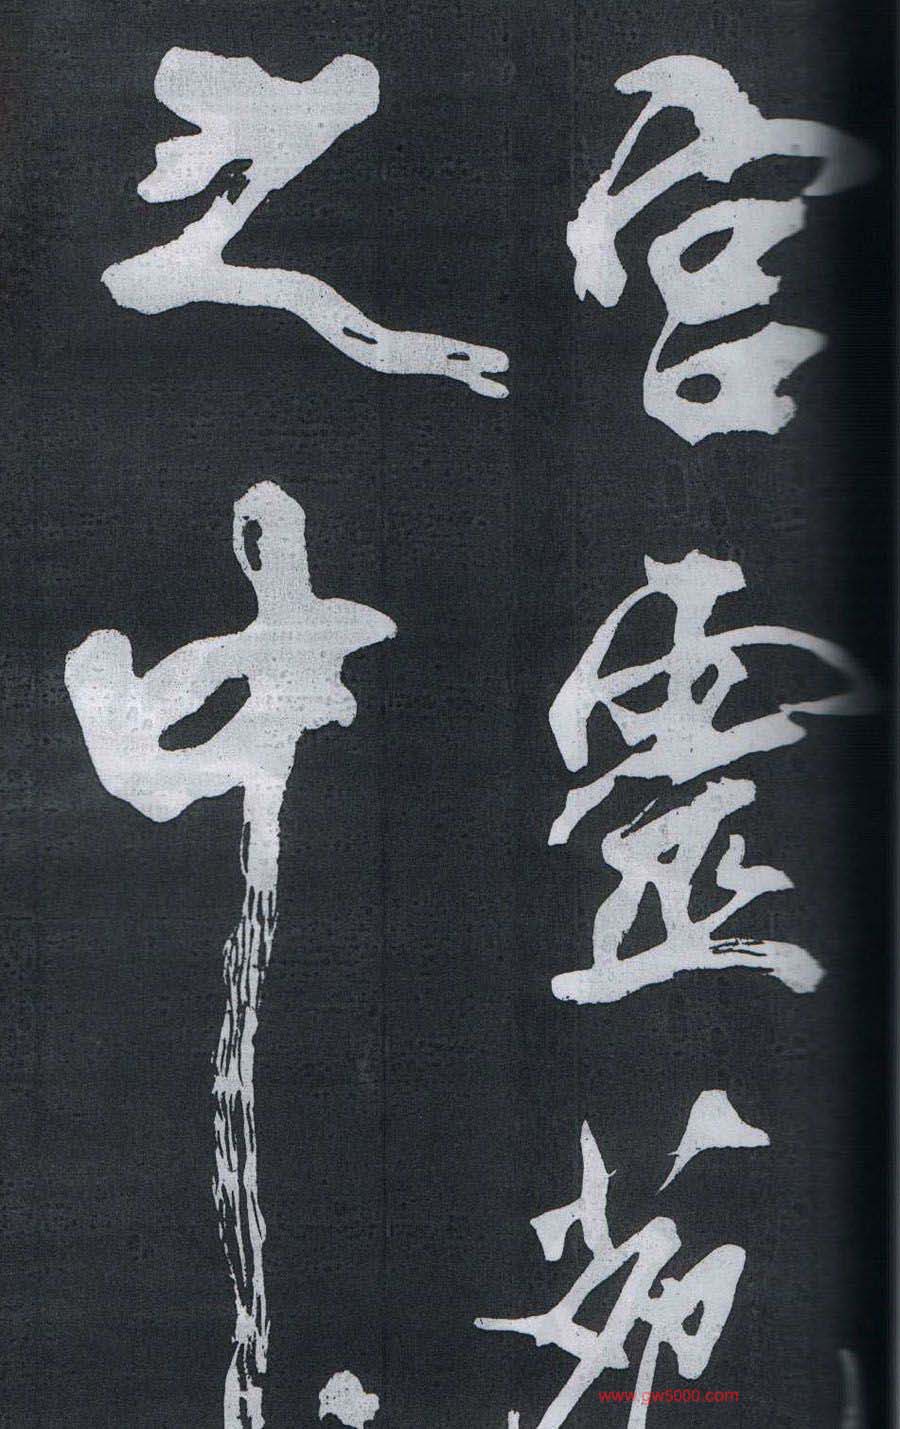 宮靈
之中
www.gw5000.com